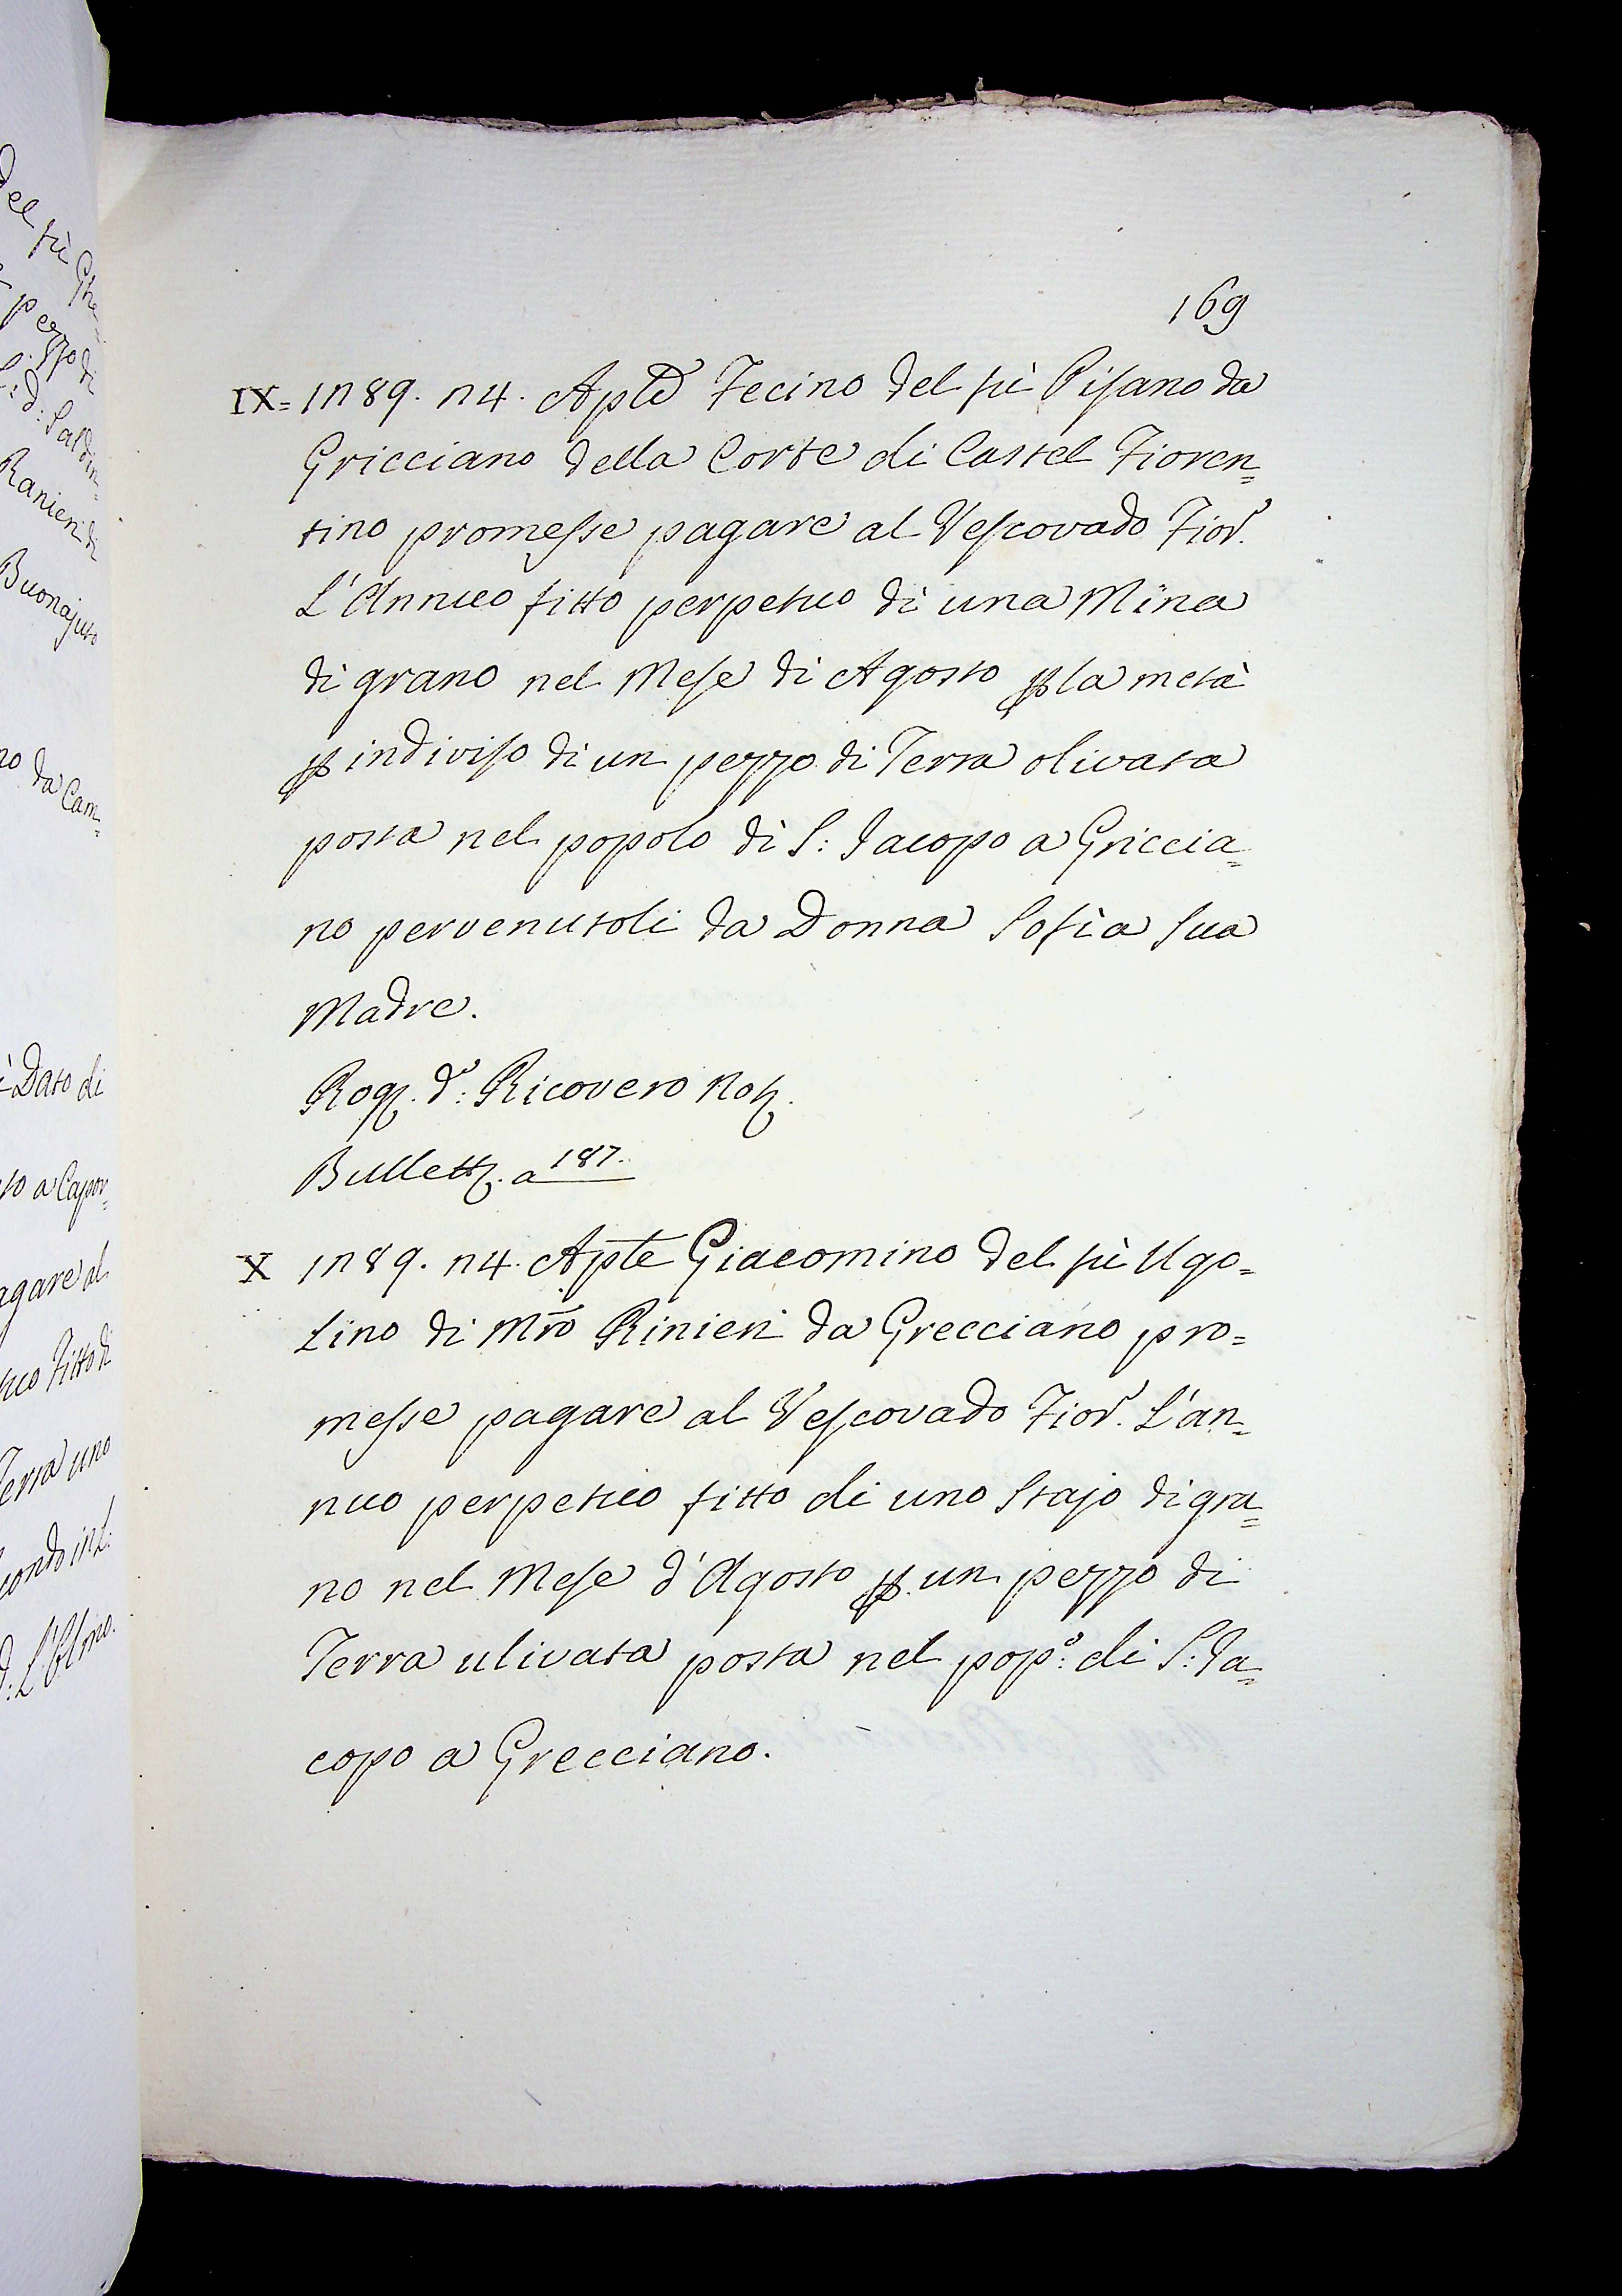 169
IX= 1289. 24. Aple Fecino del fù Pisano da
Gricciano della Corte di Castel Fioren=
tino promesse pagare al Vescovado Fior.
L'Annuo fitto perpetuo di una Mina
di grano nel Mese di Agosto p la metà
p indiviso di un pezzo di Terra olivata
posta nel popolo di S: Jacopo a Griccia=
no pervenutoli da Donna Sofia sua
Madre.
Rog. d: Ricovero Not.
Bullett. a 187.
X 1289. 24. Aple Giacomino del fù Ugo=
lino di Mro Rinieri da Grecciano pro=
messe pagare al Vescovado Fior. L'an=
nuo perpetuo fitto di uno Stajo di gra=
no nel Mese d'Agosto p. un pezzo di
Terra ulivata posta nel pop.o di S: Ja=
copo a Grecciano.